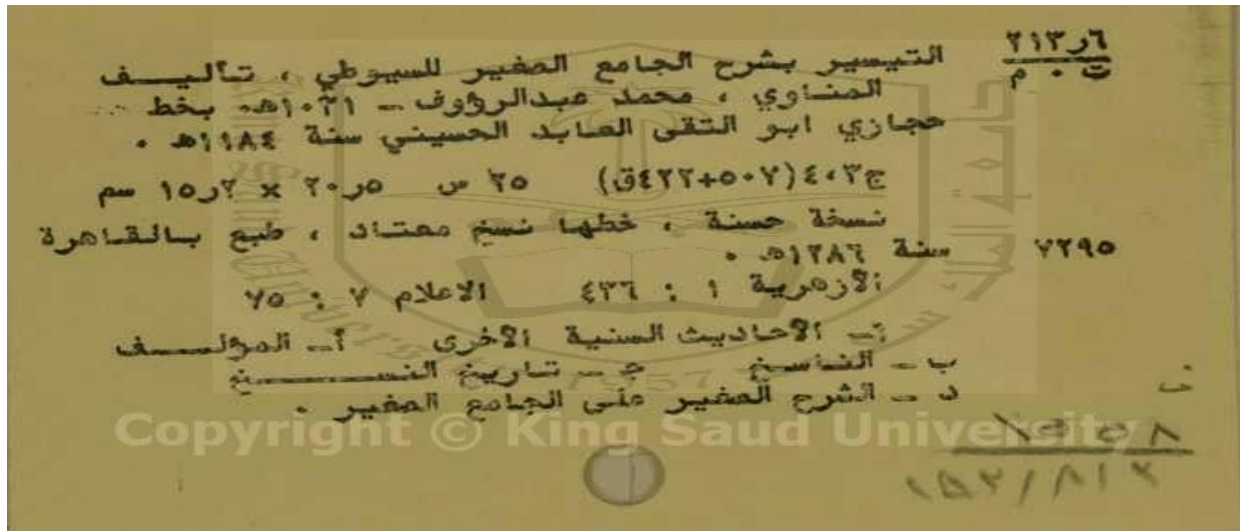 ٢١٣٫٦
ت ٠ م
التيسير بشرح الجامع الصغير للسيوطي ، تأليـــف
المنــاوي ، محمد عبدالرؤوف ـ ١٠٣١هـ٠ بخط
حجازي ابو التقى العابد الحسيني سنة ١١٨٤هـ ٠
ج٤،٣ (٥٠٧+٤٢٢ق) ٢٥ س ٢٠٫٥ × ١٥٫٢ سم
نسخة حسنة ، خطها نسخ معتــاد ، طبع بــالقــاهرة
٧٢٩٥ سنة ١٢٨٦هـ ٠
الأزهرية ١ : ٤٣٦ الاعلام ٧ : ٧٥
١ـ الأحاديث السنية الأخرى أـ المؤلــــف
ب ـ النــاسـخ جـ ـ تــاريخ النســــــخ
د ـ الشرح الصغير على الجامع الصغير ٠
Copyright © King Saud University
جامعة الملك
1957